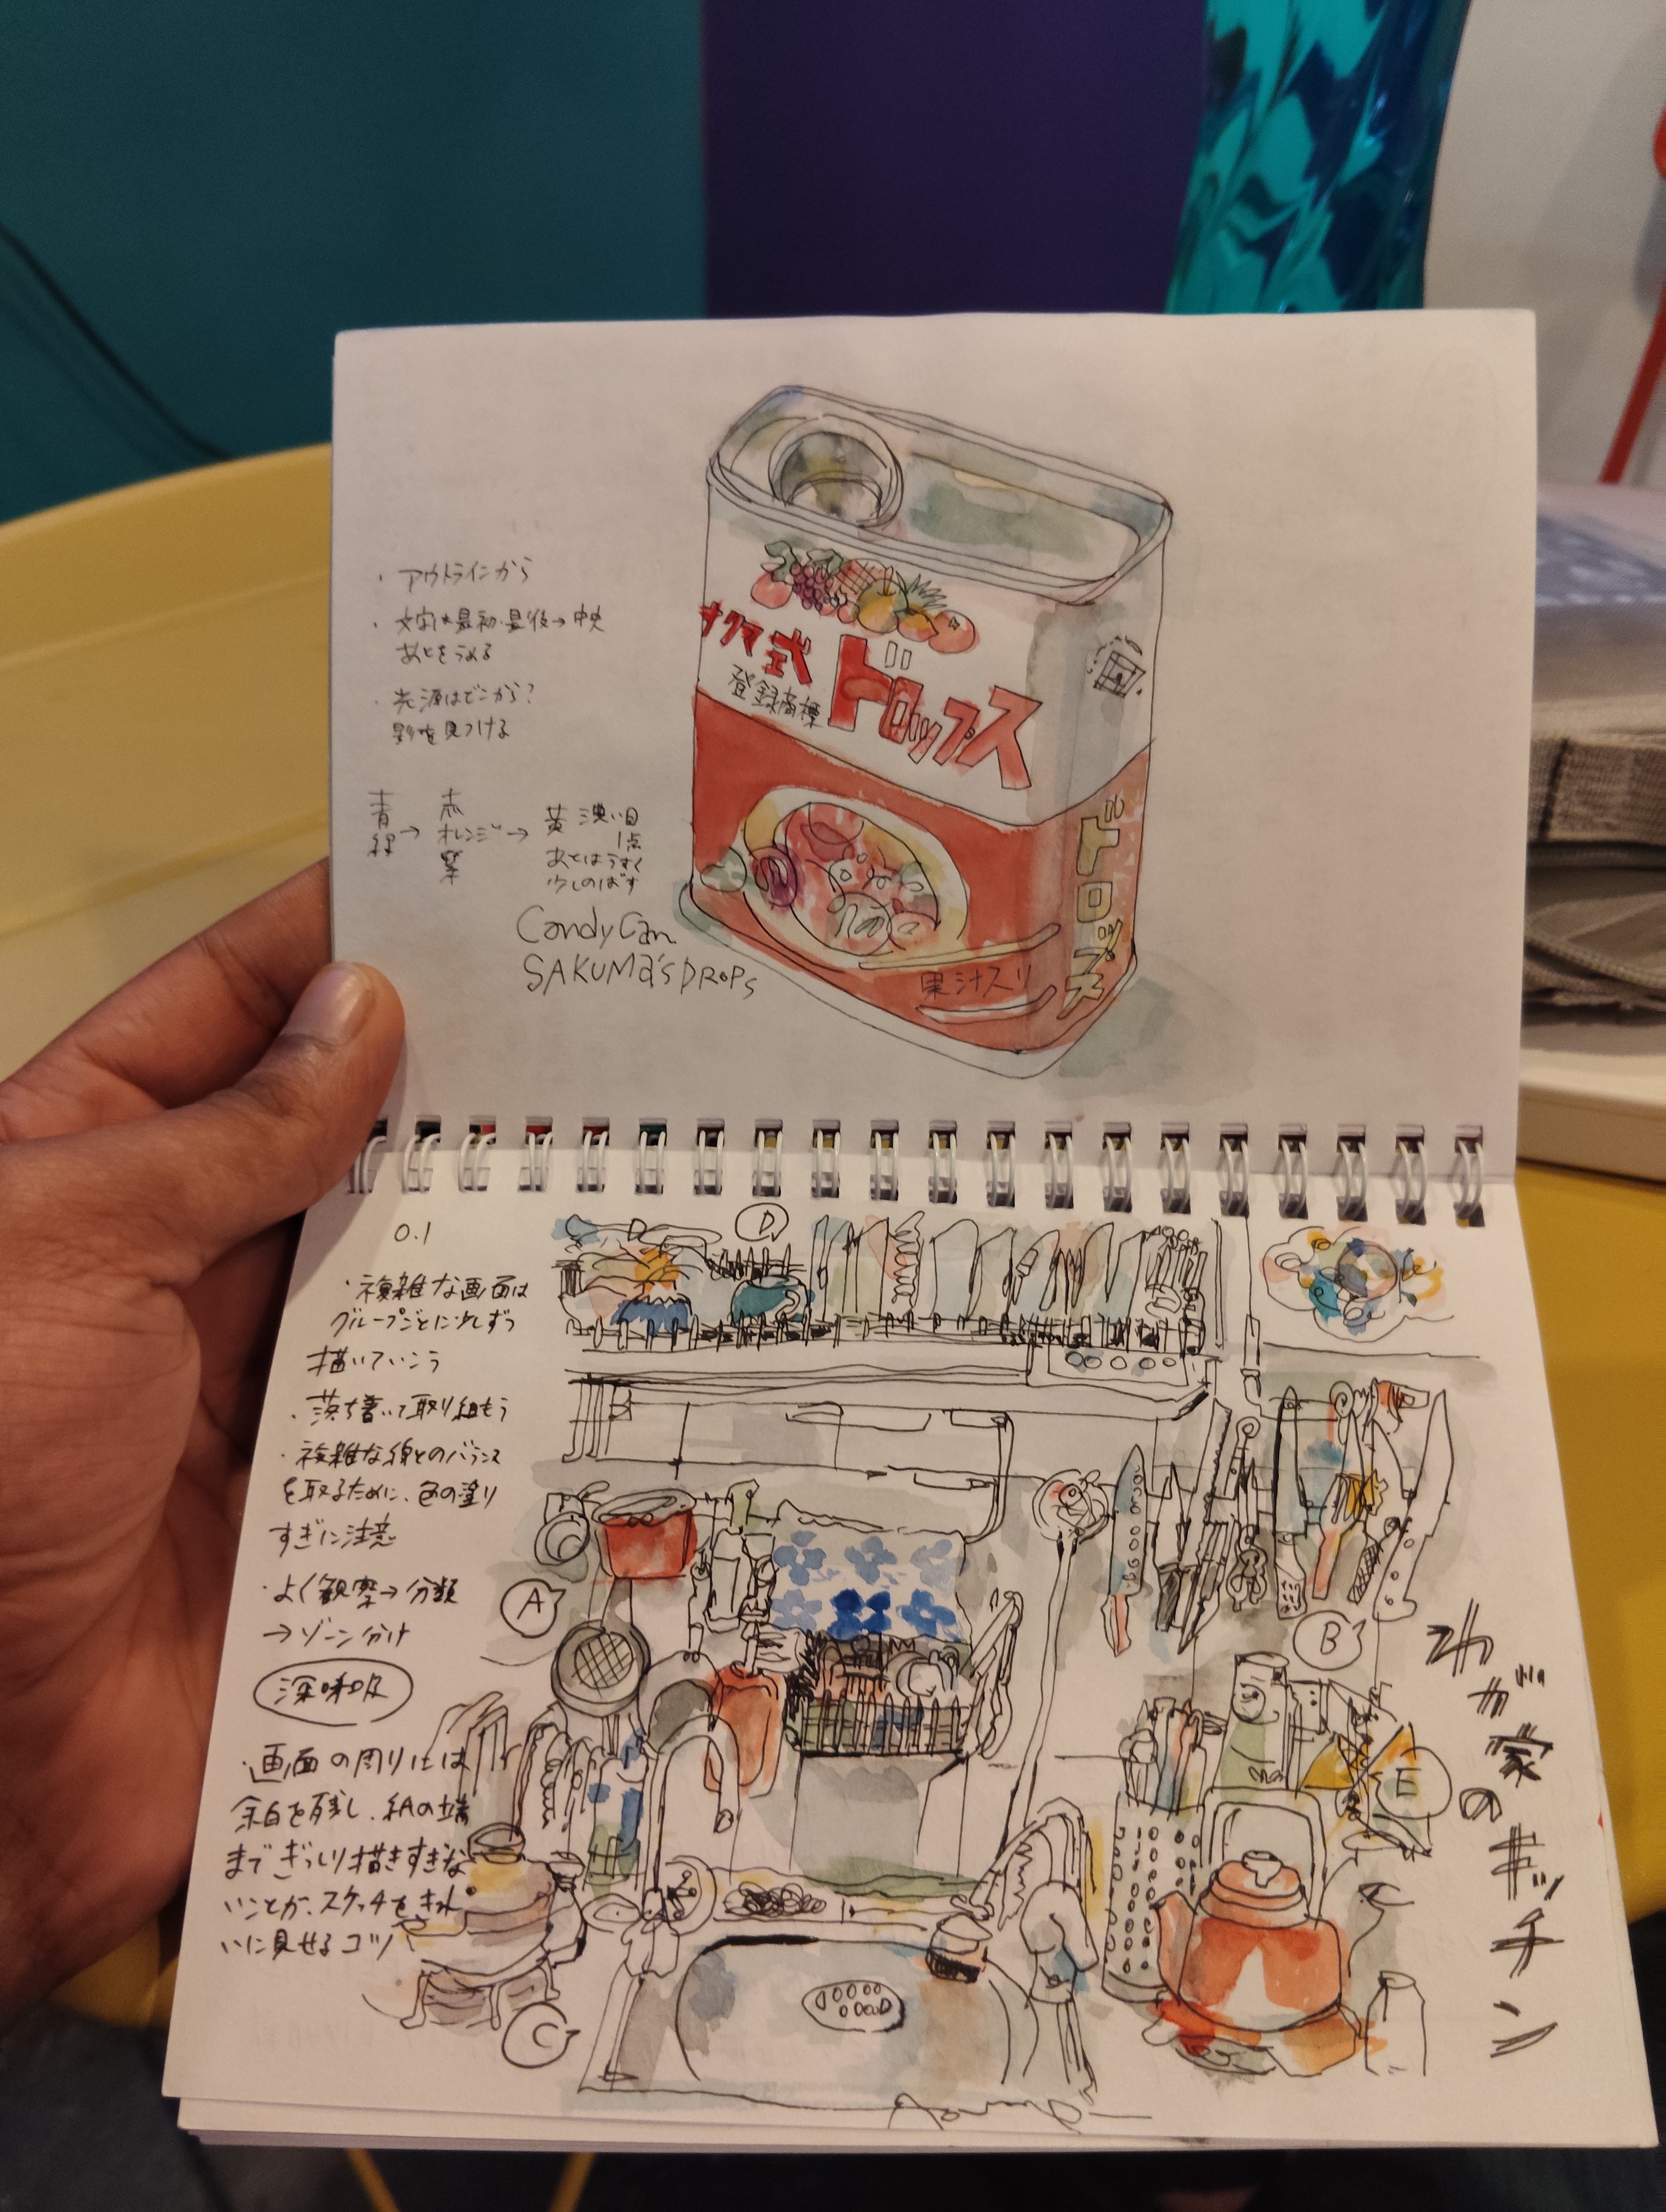 ・アウトラインから
・文字は最初・最後→中央
あとをうめる
・光源はどこから?
影を見つける
青 赤
緑→オレンジ→黄 濃い目
紫 1点
あとはうすく
少しのばす
Candy Can
SAKUMA'S DROPS
サクマ式ドロップス
登録商標
ドロップス
果汁入り
0.1
・複雑な画面は
グループごとに少しずつ
描いていこう
・落ち着いて取り組もう
・複雑な線とのバランス
を取るために、色の塗り
すぎに注意
・よく観察→分類
→ゾーン分け
深呼吸
・画面の周りには
余白を残し、紙の端
までぎっしり描きすぎな
いことが、スケッチをきれ
いに見せるコツ
D
A
B
E
C
わが家のキッチン